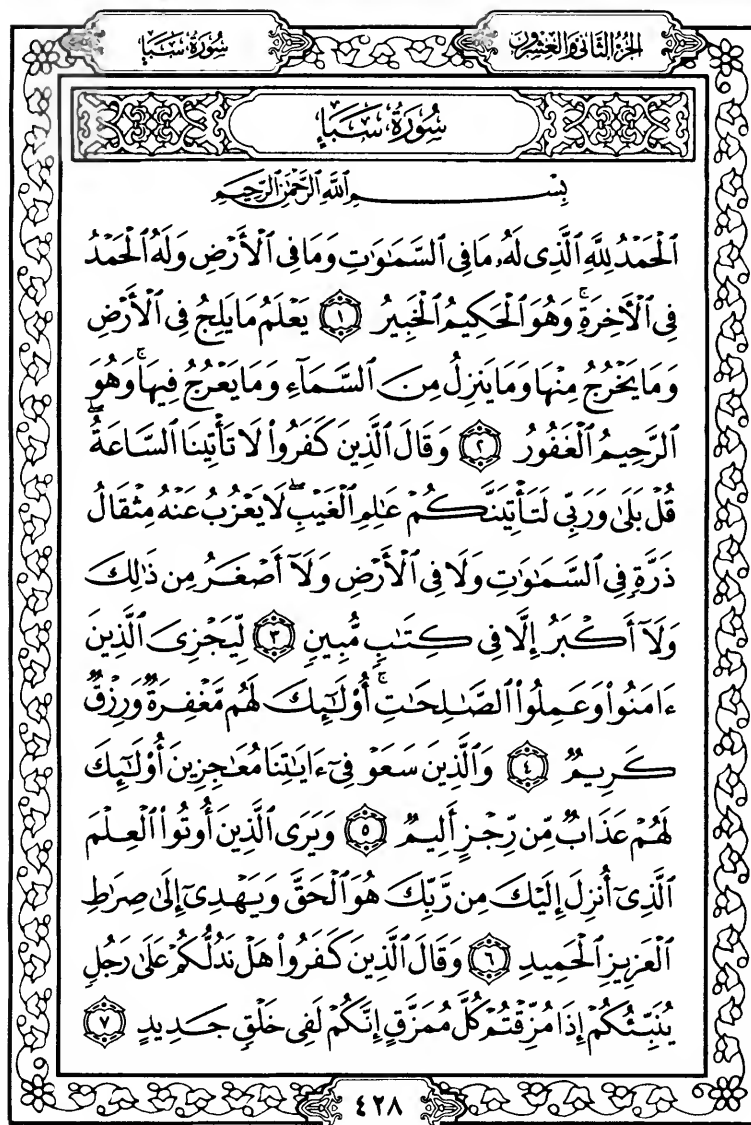 الجزء الثاني والعشرون
سورة سبإ
سورة سبإ
بسم الله الرحمن الرحيم
ٱلْحَمْدُ لِلَّهِ ٱلَّذِى لَهُۥ مَا فِى ٱلسَّمَٰوَٰتِ وَمَا فِى ٱلْأَرْضِ وَلَهُ ٱلْحَمْدُ
فِى ٱلْأَخِرَةِ ۚ وَهُوَ ٱلْحَكِيمُ ٱلْخَبِيرُ ١ يَعْلَمُ مَا يَلِجُ فِى ٱلْأَرْضِ
وَمَا يَخْرُجُ مِنْهَا وَمَا يَنزِلُ مِنَ ٱلسَّمَآءِ وَمَا يَعْرُجُ فِيهَا ۚ وَهُوَ
ٱلرَّحِيمُ ٱلْغَفُورُ ٢ وَقَالَ ٱلَّذِينَ كَفَرُوا۟ لَا تَأْتِينَا ٱلسَّاعَةُ ۖ
قُلْ بَلَىٰ وَرَبِّى لَتَأْتِيَنَّكُمْ عَٰلِمِ ٱلْغَيْبِ ۖ لَا يَعْزُبُ عَنْهُ مِثْقَالُ
ذَرَّةٍ فِى ٱلسَّمَٰوَٰتِ وَلَا فِى ٱلْأَرْضِ وَلَآ أَصْغَرُ مِن ذَٰلِكَ
وَلَآ أَكْبَرُ إِلَّا فِى كِتَٰبٍ مُّبِينٍ ٣ لِّيَجْزِىَ ٱلَّذِينَ
ءَامَنُوا۟ وَعَمِلُوا۟ ٱلصَّٰلِحَٰتِ ۚ أُو۟لَٰٓئِكَ لَهُم مَّغْفِرَةٌ وَرِزْقٌ
كَرِيمٌ ٤ وَٱلَّذِينَ سَعَوْ فِىٓ ءَايَٰتِنَا مُعَٰجِزِينَ أُو۟لَٰٓئِكَ
لَهُمْ عَذَابٌ مِّن رِّجْزٍ أَلِيمٌ ٥ وَيَرَى ٱلَّذِينَ أُوتُوا۟ ٱلْعِلْمَ
ٱلَّذِىٓ أُنزِلَ إِلَيْكَ مِن رَّبِّكَ هُوَ ٱلْحَقَّ وَيَهْدِىٓ إِلَىٰ صِرَٰطِ
ٱلْعَزِيزِ ٱلْحَمِيدِ ٦ وَقَالَ ٱلَّذِينَ كَفَرُوا۟ هَلْ نَدُلُّكُمْ عَلَىٰ رَجُلٍ
يُنَبِّئُكُمْ إِذَا مُزِّقْتُمْ كُلَّ مُمَزَّقٍ إِنَّكُمْ لَفِى خَلْقٍ جَدِيدٍ ٧
٤٢٨